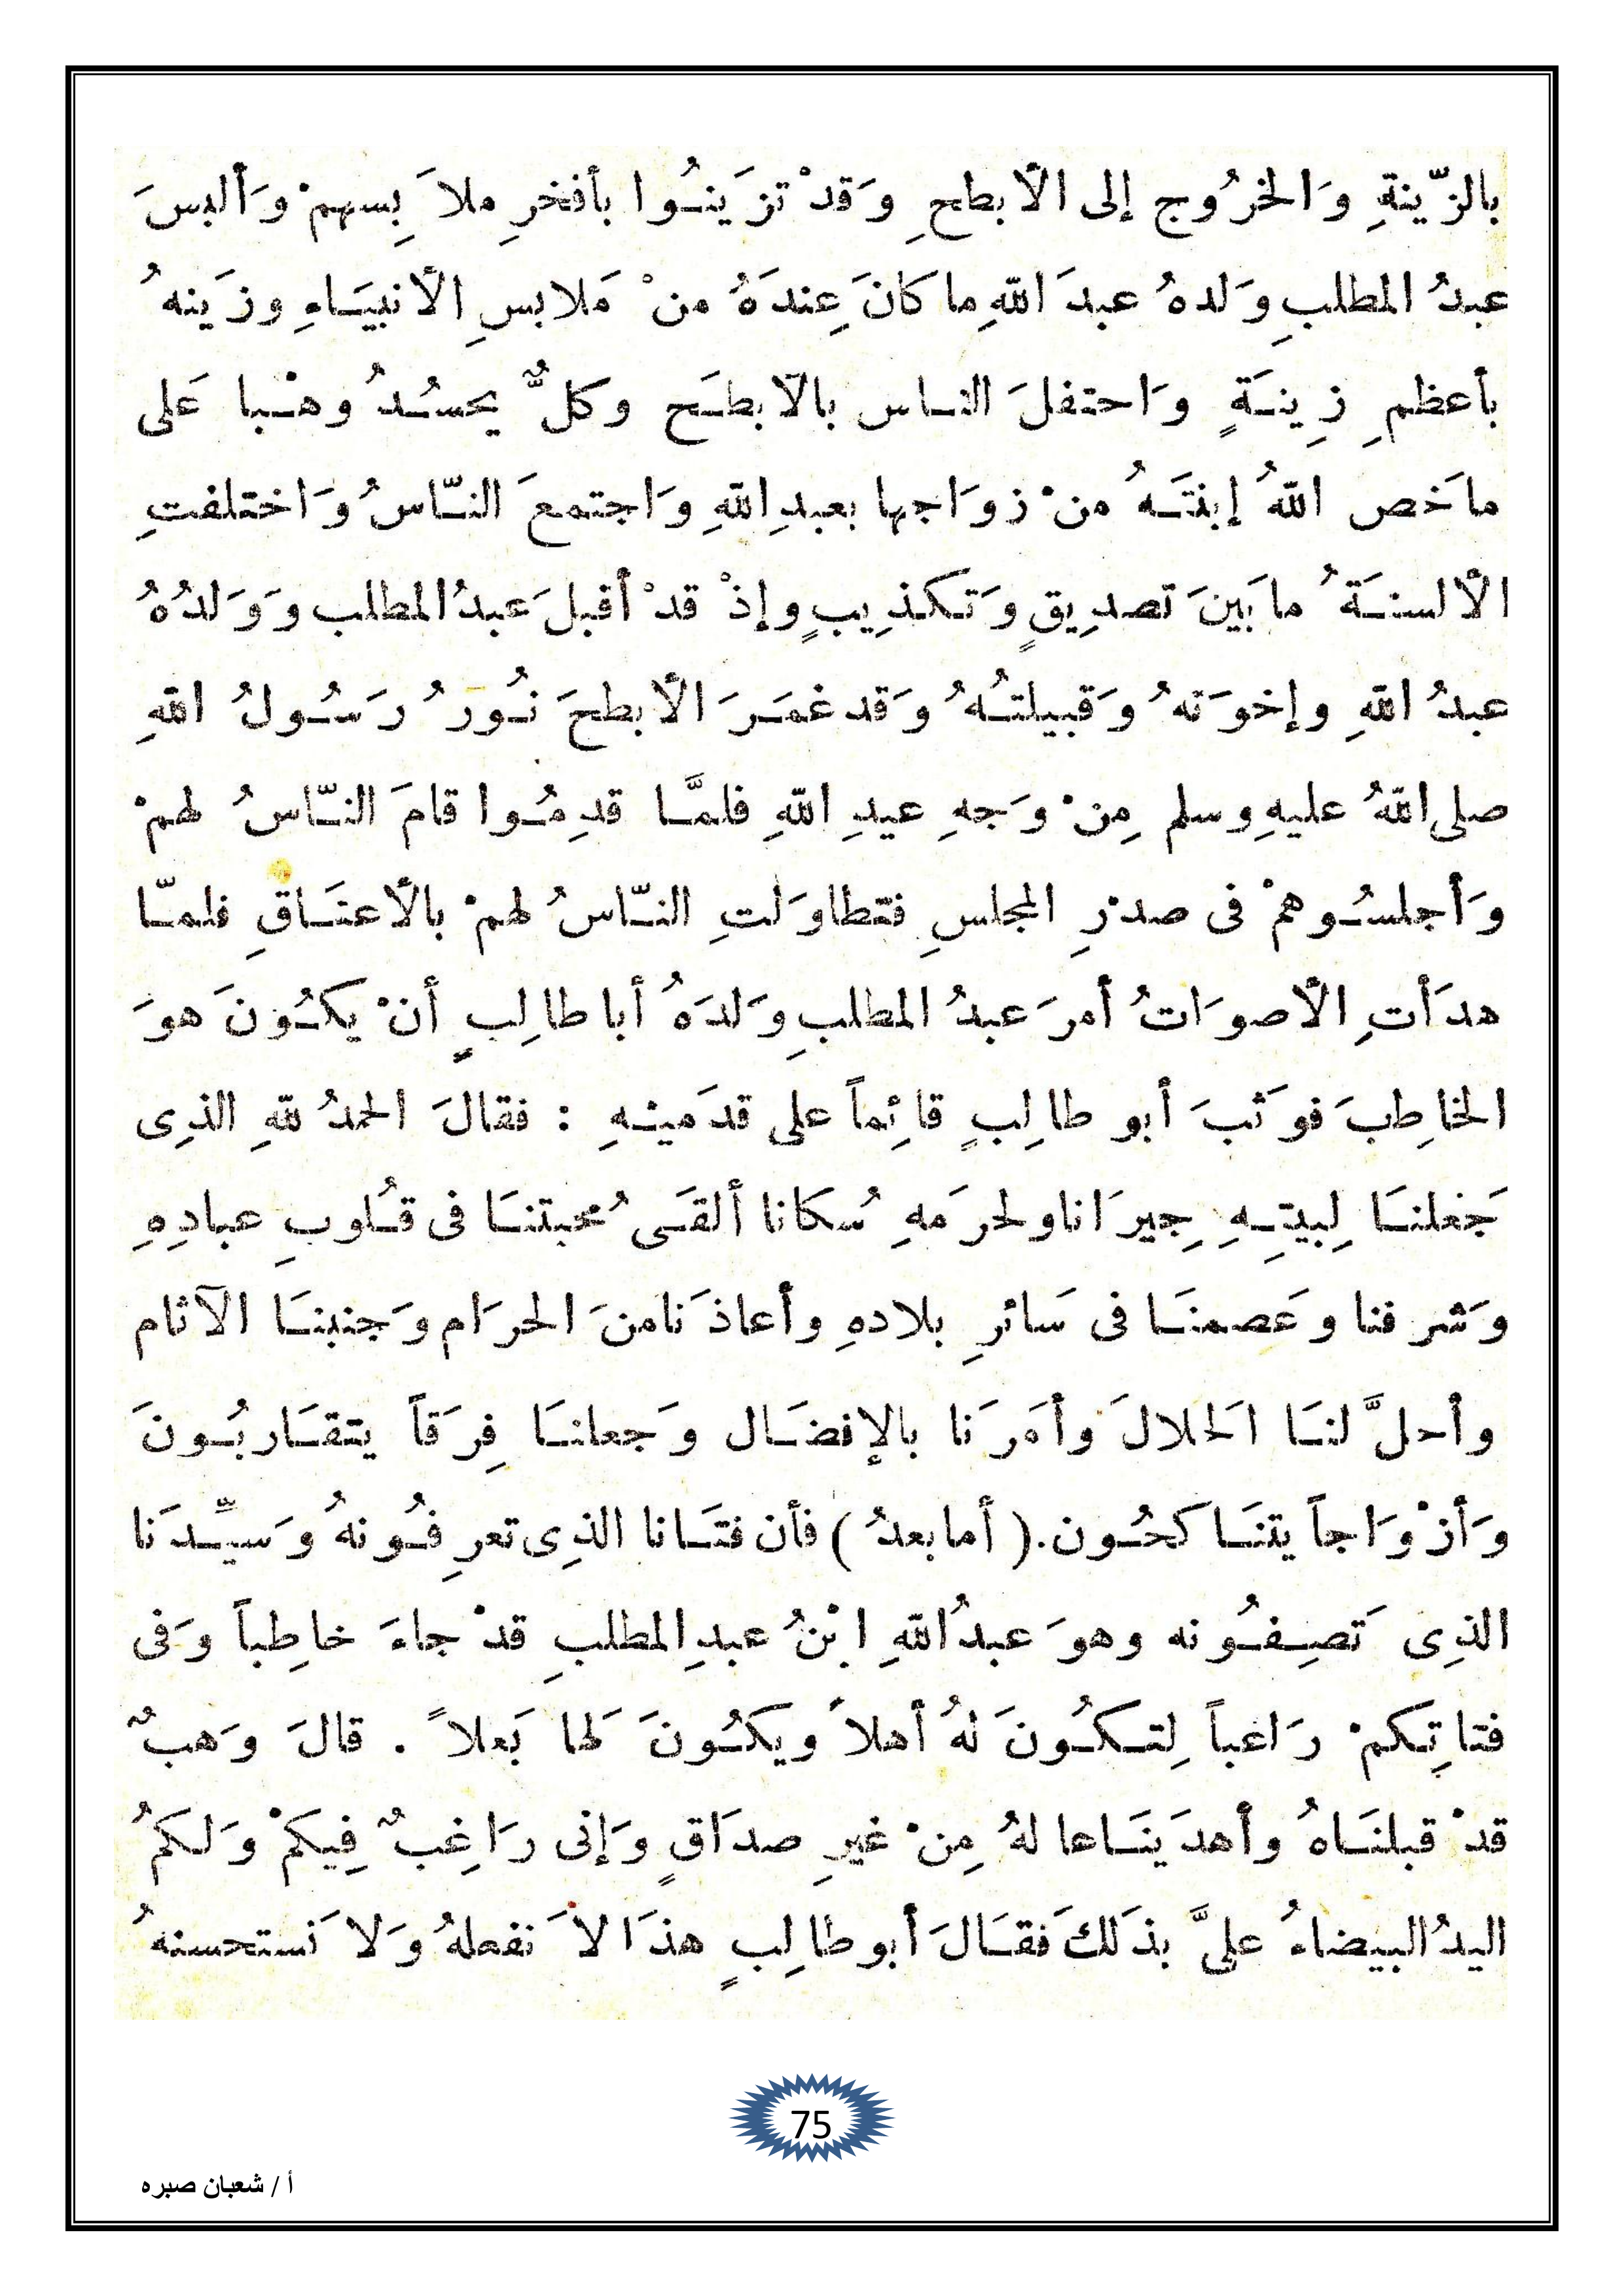 بالزّينةِ وَالخرُوج إلى الأبطحِ وَقدْ تزَينُوا بأفخرِ ملاَبِسهمْ وَألبسَ
عبدُ المطلبِ وَلدهُ عبدَ اللهِ ما كانَ عِندَهُ منْ مَلابسِ الأنبيَاءِ وزَينهُ
بأعظمِ زِينَةٍ وَاحتفلَ الناس بالأبطَح وكلٌّ يحسُدُ وهْبا عَلى
ماخَص اللهُ إبنتَهُ منْ زوَاجها بعبدِ اللهِ وَاجتمعَ النّاسُ وَاختلفتِ
الألسنَةُ مابَينَ تصدِيقٍ وَتكذِيبٍ وإذْ قدْ أقبلَ عبدُ المطلب وَوَلدُهُ
عبدُ اللهِ وإخوَتهُ وَقبيلتُهُ وَقد غمَرَ الأبطحَ نُورُ رَسُولُ اللهِ
صلى اللهُ عليهِ وسلم مِنْ وَجهِ عيدِ اللهِ فلمَّا قدِمُوا قامَ النّاسُ لهمْ
وَأجلسُوهمْ فى صدْرِ المجلسِ فتطاوَلتِ النّاسُ لهمْ بالأعنَاقِ فلمّا
هدَأتِ الأصوَاتُ أمرَ عبدُ المطلبِ وَلدَهُ أبا طالِبٍ أنْ يكُونَ هوَ
الخاطِبَ فوَثبَ أبو طالِبٍ قائِماً على قدَميْهِ : فقالَ الحمدُ للهِ الذِى
جَعلنَا لِبيتِهِ جِيرَانا ولحرَمهِ سُكانا ألقَى محُبتنَا فى قُلوبِ عبادِهِ
وَشرفنا وعَصمنَا فى سَائرِ بلادهِ وأعاذَنا منَ الحرَام وَجنبنَا الآثام
وأحلَّ لنَا الحَلالَ وأمَرَنا بالإفضَال وَجعلنَا فِرَقاً يتقَاربُونَ
وَأزْوَاجاً يتنَاكحُون.( أما بعدُ ) فأن فتَانا الذِى تعرِفُونهُ وَسيِّدَنا
الذِى تَصِفُونه وهوَ عبدُ اللهِ ابْنُ عبدِ المطلبِ قدْ جاءَ خاطِباً وَفى
فتاتِكمْ رَاغباً لِتكُونَ لهُ أهلاً ويكُونَ لَها بَعلاً . قالَ وَهبٌ
قدْ قبلنَاهُ وأهدَينَاعا لهُ مِنْ غيرِ صدَاقٍ وَإنى رَاغِبٌ فِيكمْ وَلكمُ
اليدُ البيضاءُ علىَّ بذَلكَ فقَالَ أبو طالِبٍ هذَا لاَ نفعلهُ وَلا نَستحسنهُ
75
أ / شعبان صبره